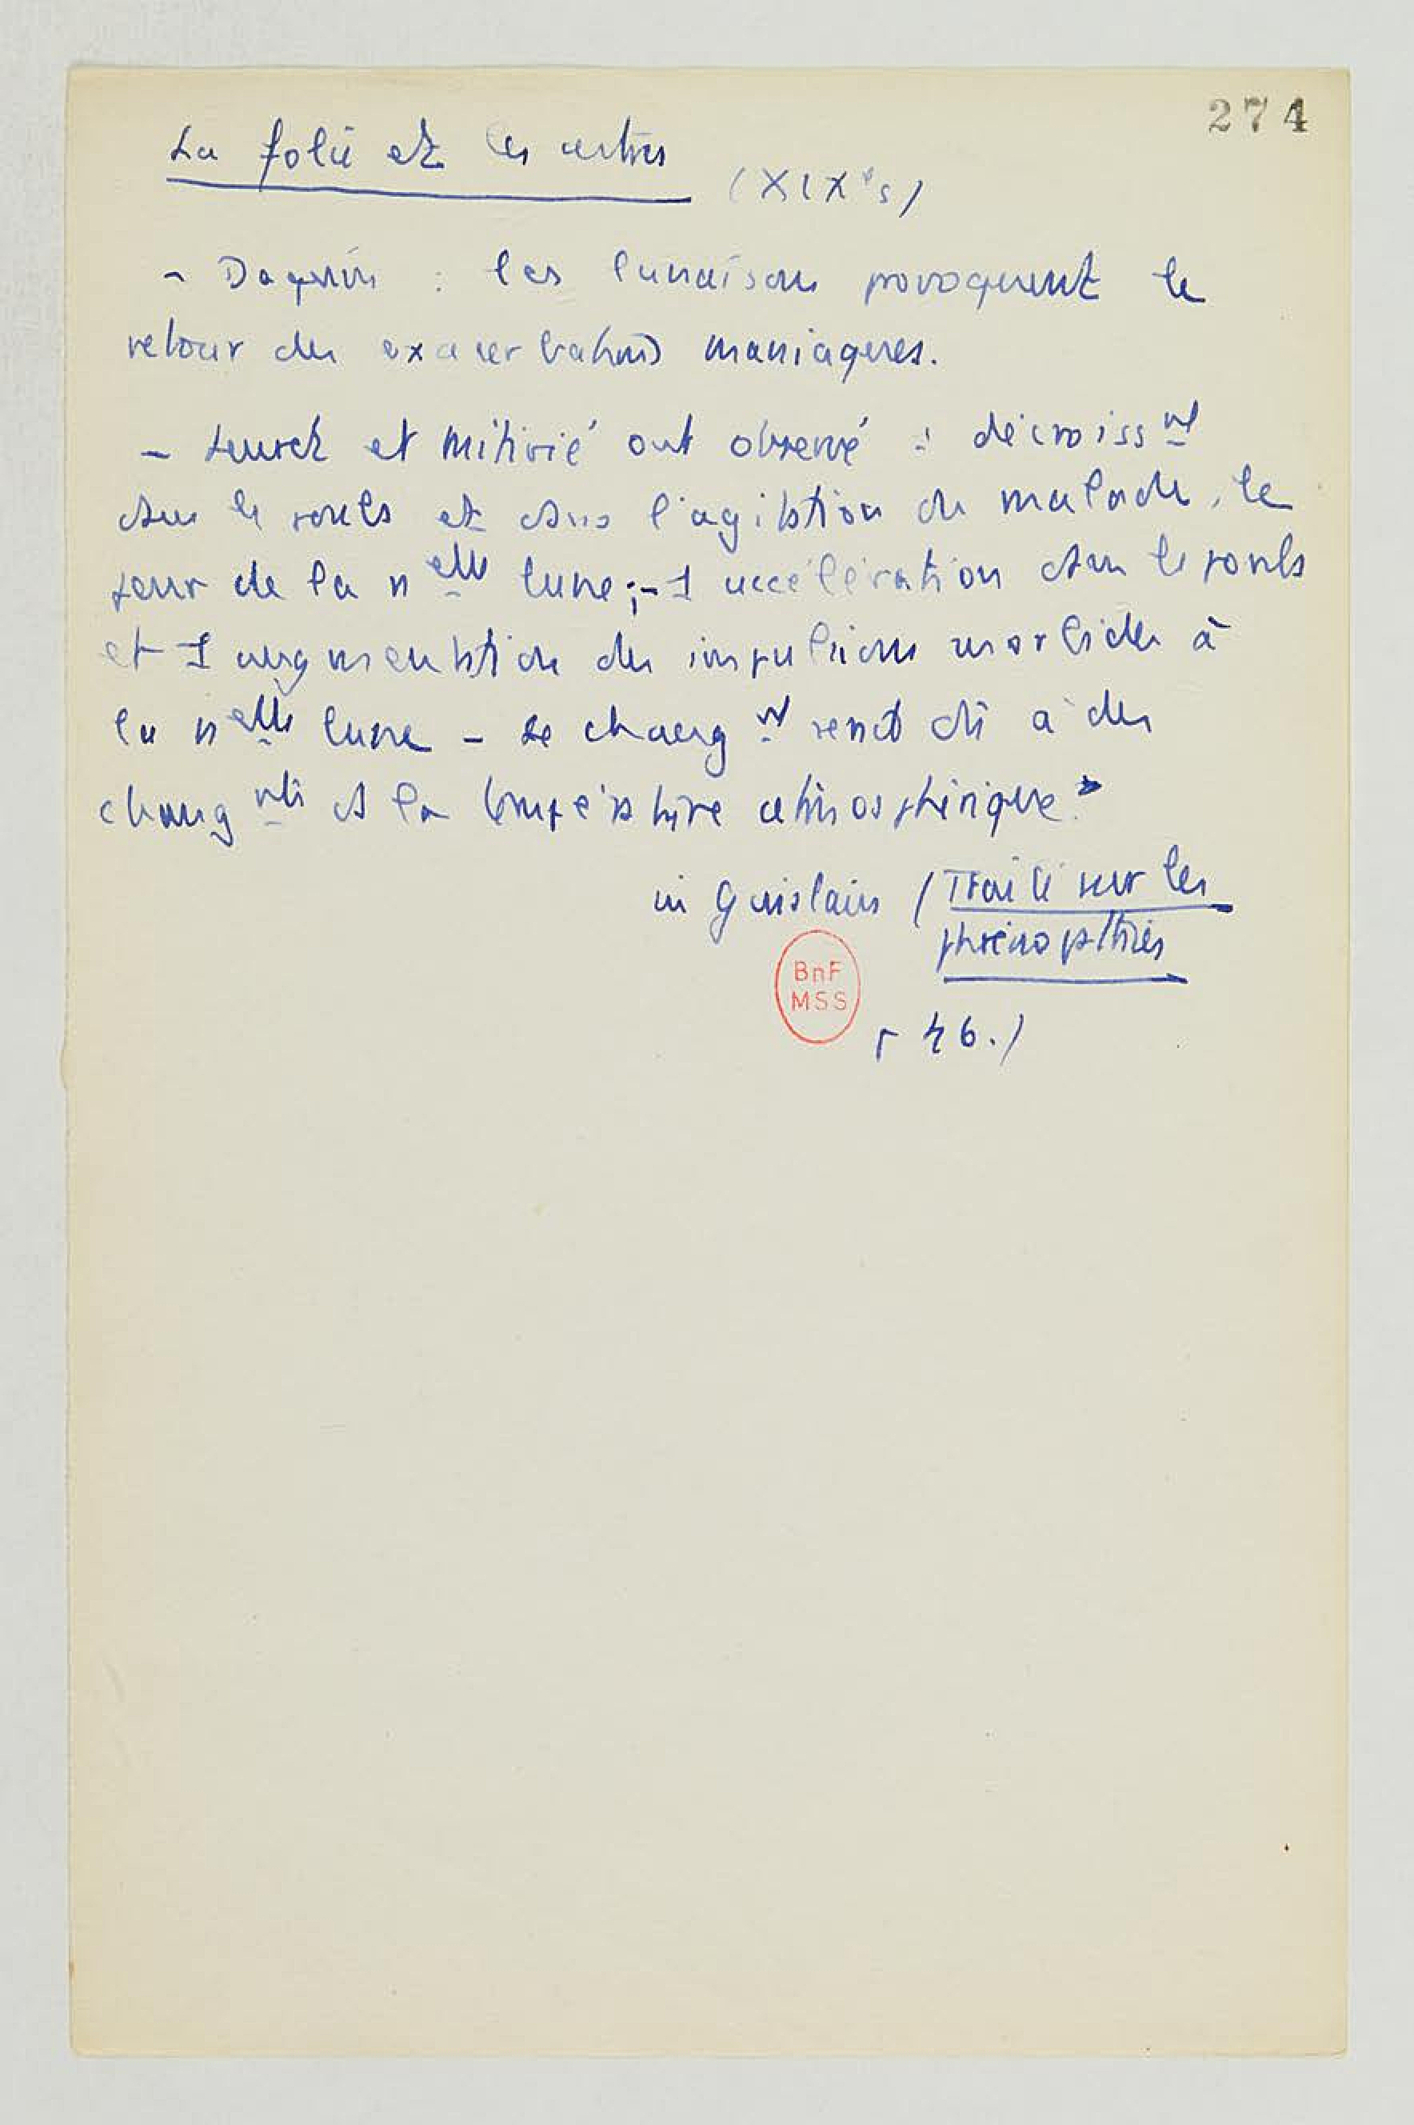 274
La folie et les astres
(XIXe s)
- Daquin : les lunaisons provoquent le
retour des exacerbations maniaques.
- Leuret et Mitivié ont observé : décroissnt
dans le pouls et dans l'agitation du malade, le
jour de la nelle lune ; - 1 accélération dans le pouls
et 1 augmentation des impulsions morbides à
la nelle lune - ce changnt serait dû à des
changnts ds la température atmosphérique.
in Guislain (Traité sur les
phrénopathies
p 46.)
BnF
MSS